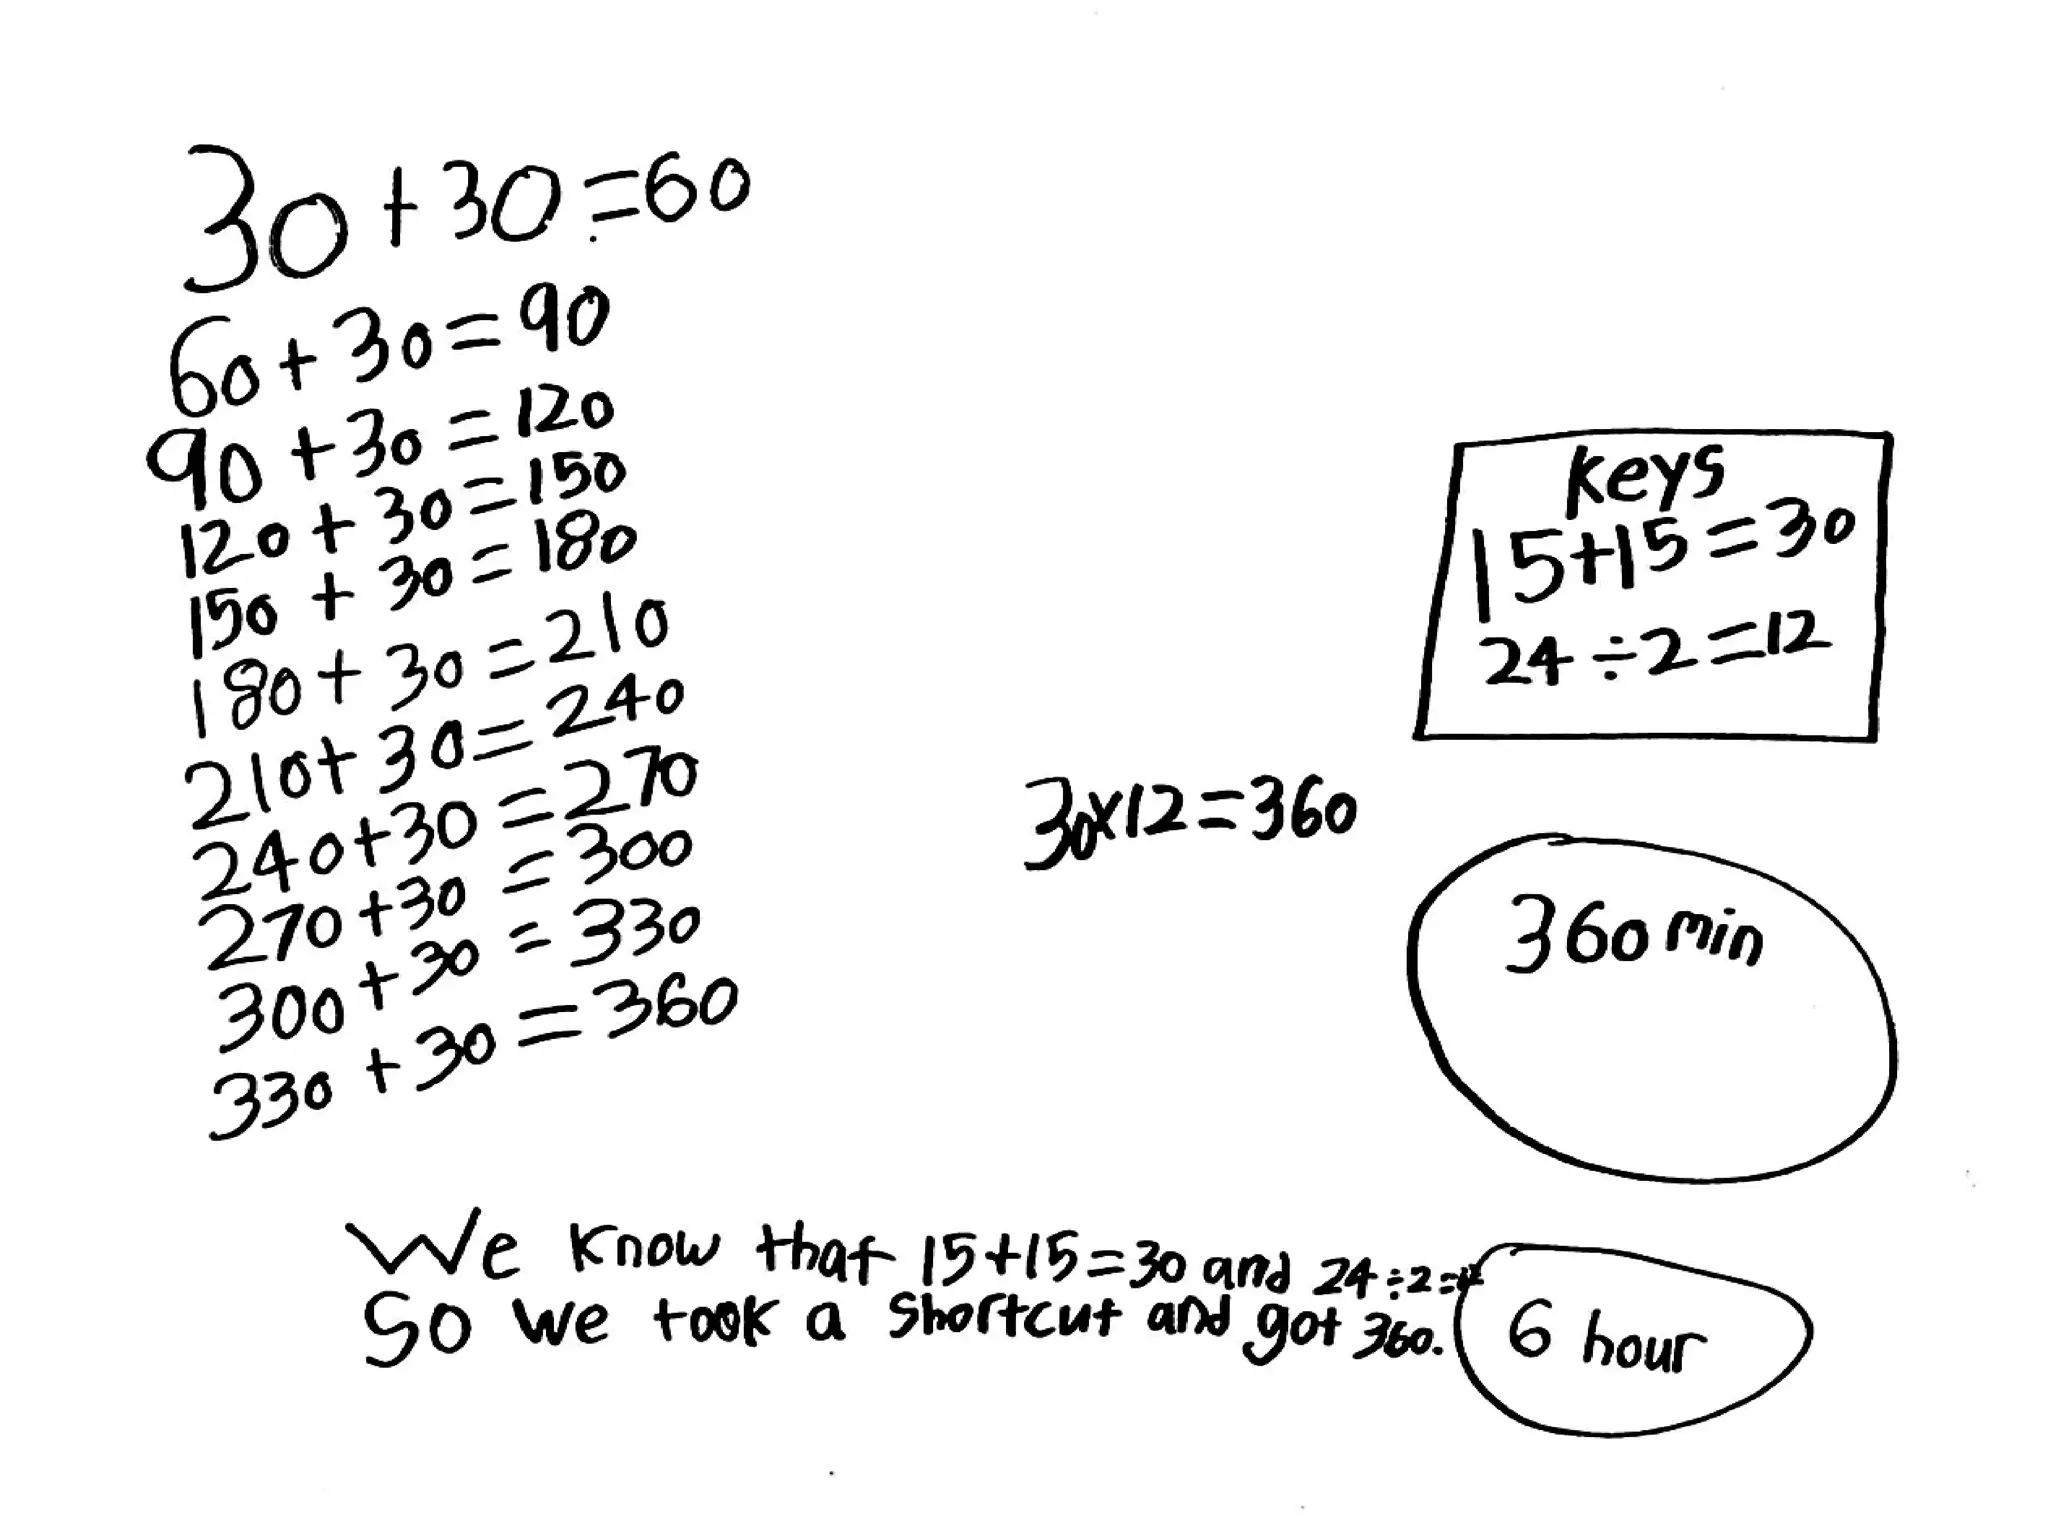 30+30=60
60+30=90
90+30=120
120+30=150
150+30=180
180+30=210
210+30=240
240+30=270
270+30=300
300+30=330
330+30=360
keys
15+15=30
24÷2=12
30x12=360
360 min
We know that 15+15=30 and 24÷2=
So we took a shortcut and got 360.
6 hour